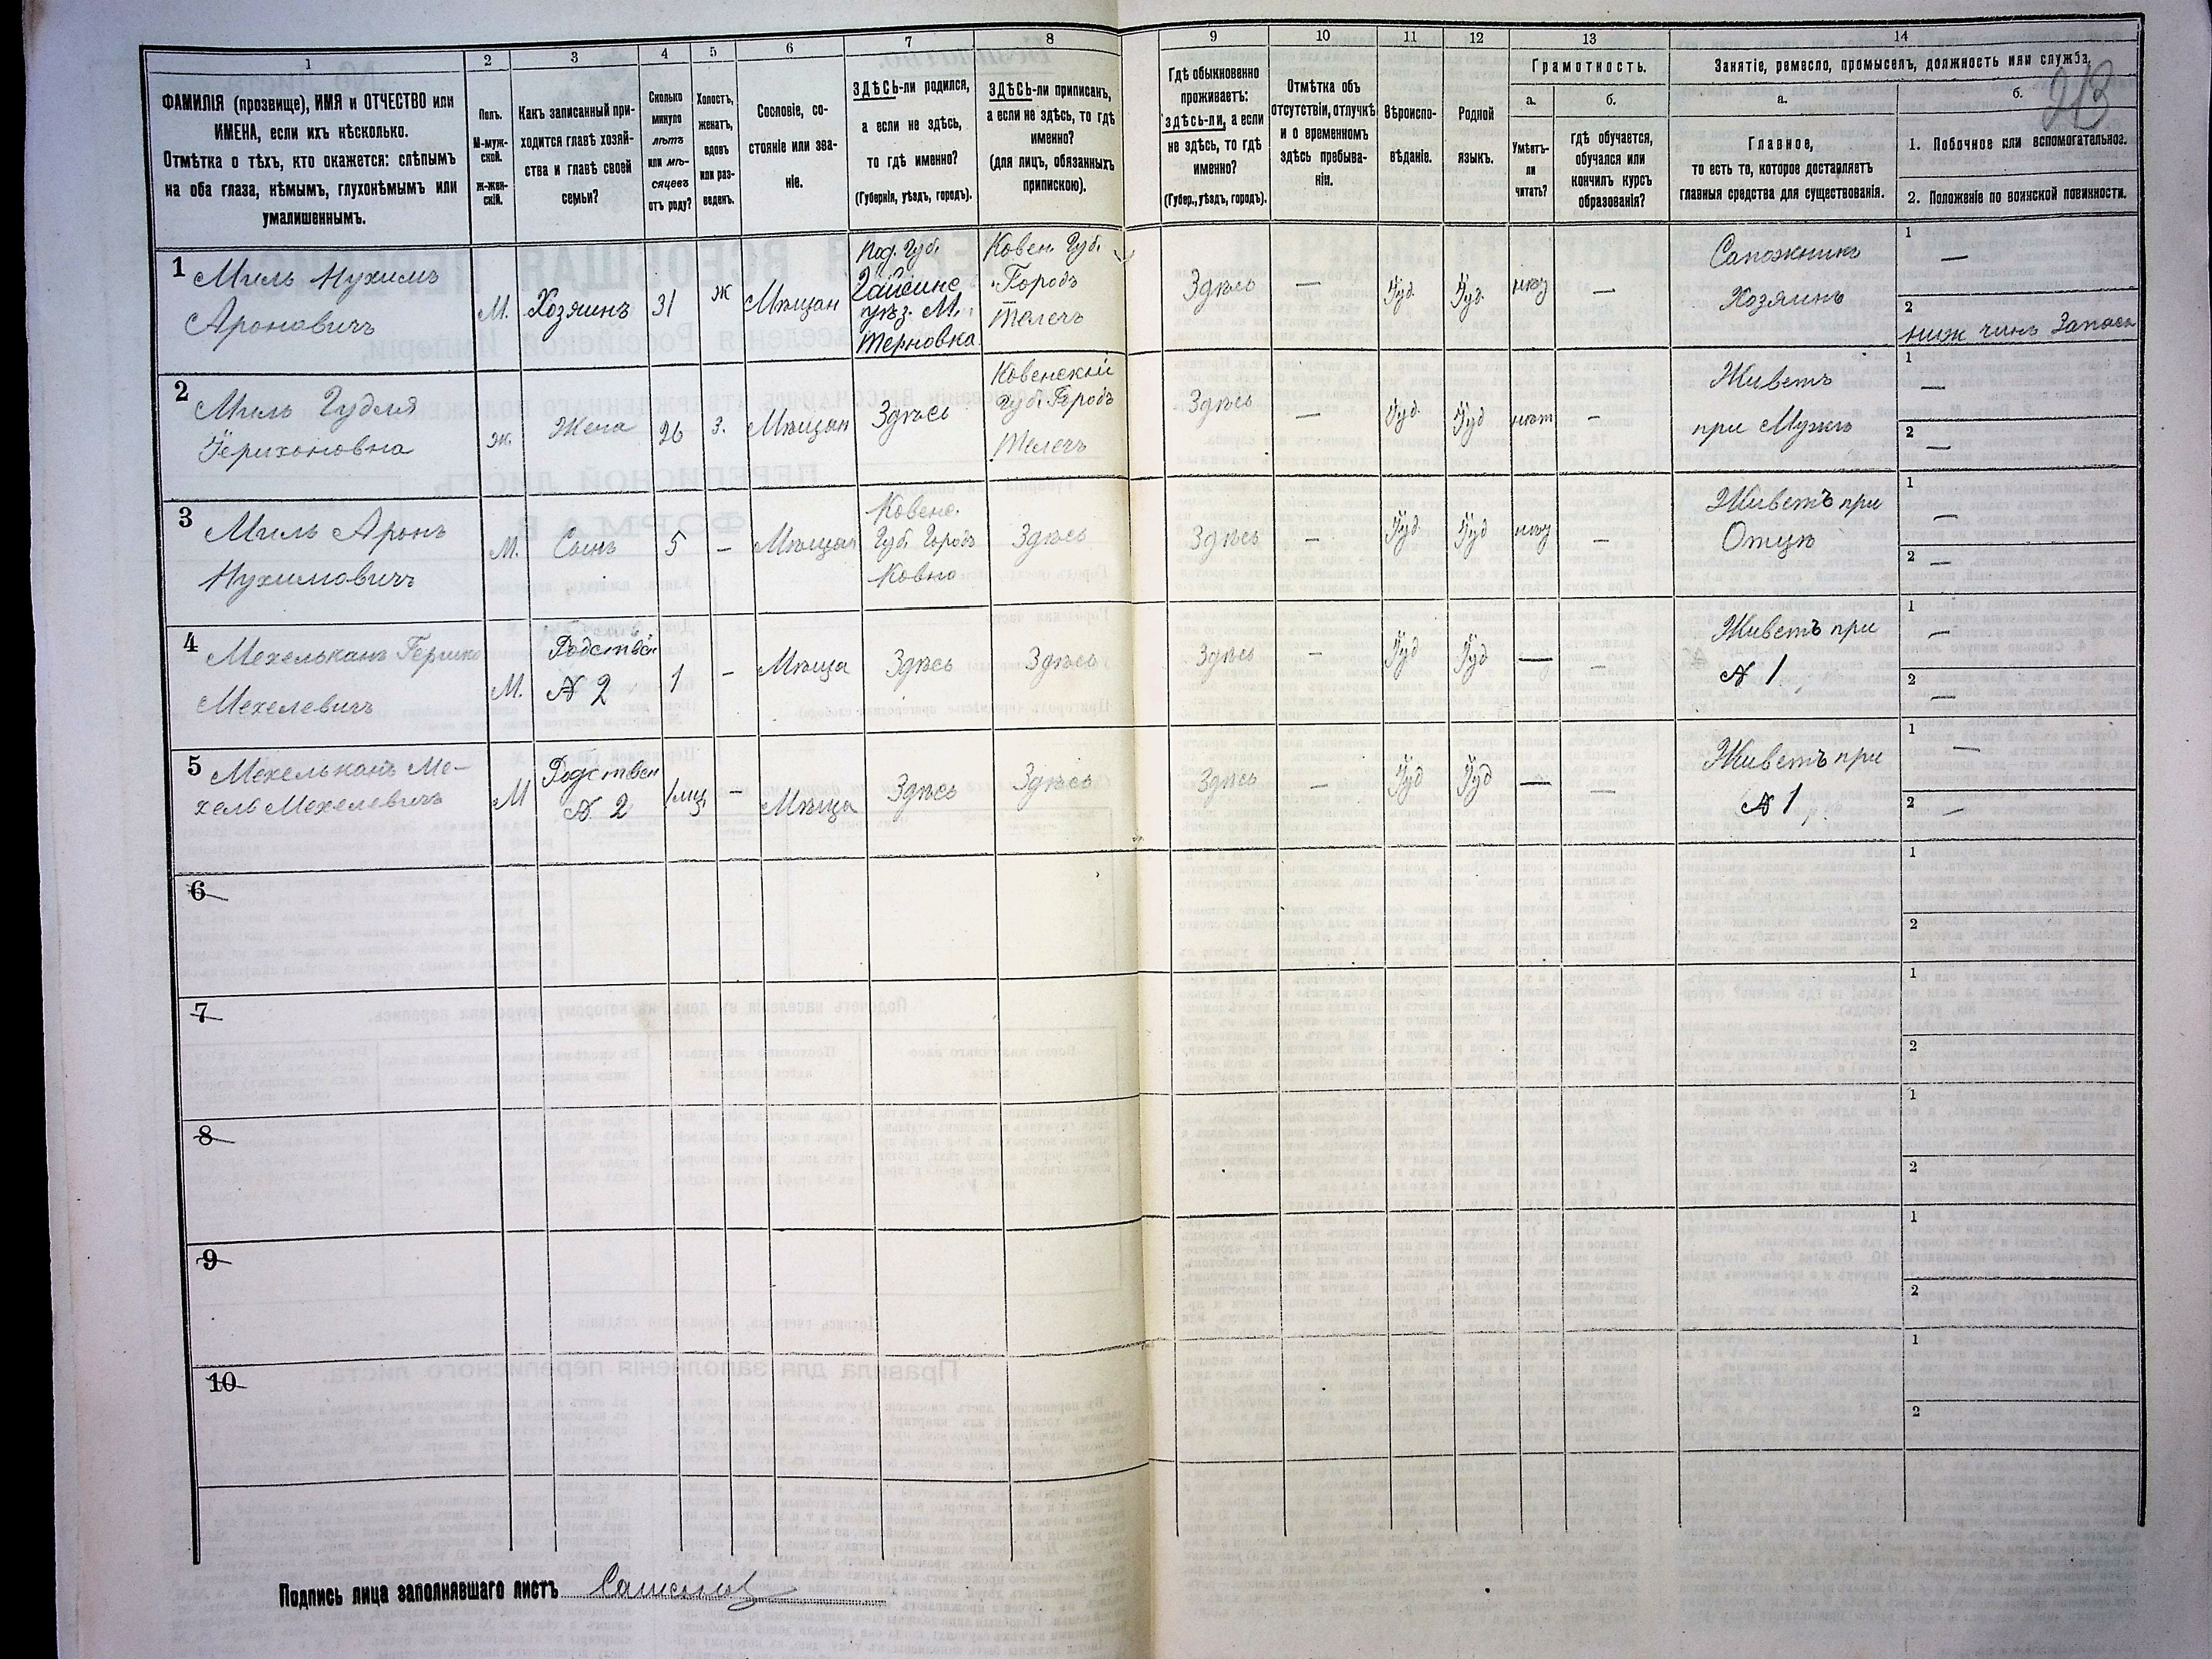 1 2 3 4 5 6 7 8 9 10 11 12 13 14
ФАМИЛІЯ (прозвище), ИМЯ и ОТЧЕСТВО или
ИМЕНА, если ихъ нѣсколько.
Отмѣтка о тѣхъ, кто окажется: слѣпымъ
на оба глаза, нѣмымъ, глухонѣмымъ или
умалишеннымъ.
Полъ.
М-муж-
ской.
ж-жен-
скій.
Какъ записанный при-
ходится главѣ хозяй-
ства и главѣ своей
семьи?
Сколько
минуло
лѣтъ
или мѣ-
сяцевъ
отъ роду?
Холостъ,
женатъ,
вдовъ
или раз-
веденъ.
Сословіе, со-
стояніе или зва-
ніе.
ЗДѢСЬ-ли родился,
а если не здѣсь,
то гдѣ именно?
(Губернія, уѣздъ, городъ).
ЗДѢСЬ-ли приписанъ,
а если не здѣсь, то гдѣ
именно?
(для лицъ, обязанныхъ
припискою).
Гдѣ обыкновенно
проживаетъ:
здѣсь-ли, а если
не здѣсь, то гдѣ
именно?
(Губер., уѣздъ, городъ).
Отмѣтка объ
отсутствіи, отлучкѣ
и о временномъ
здѣсь пребыва-
ніи.
Вѣроиспо-
вѣданіе.
Родной
языкъ.
Грамотность.
а. б.
Умѣетъ-
ли
читать?
гдѣ обучается,
обучался или
кончилъ курсъ
образованія?
Занятіе, ремесло, промыселъ, должность или служба.
213
а. б.
Главное,
то есть то, которое доставляетъ
главныя средства для существованія.
1. Побочное или вспомогательное.
2. Положеніе по воинской повинности.
1
Миль Нухимъ
Ароновичъ
М.
Хозяинъ
31
Ж
Мѣщан
Под. Губ.
Гайсинс
уѣз. М.
Терновка
Ковен Губ.
Городъ
Телечъ
Здѣсь
—
Іуд.
Іуд.
—
Сапожникъ
Хозяинъ
1
—
2
ниж чинъ Запаса
2
Миль Гудля
Ж.
Жена
26
З.
Мѣщан
Здѣсь
Ковенской
Губ. Городъ
Телечъ
Здѣсь
—
Іуд.
Іуд
нѣт
—
Живетъ
при Мужѣ
1
—
2
—
3
Миль Аронъ
Нухимовичъ
М.
Сынъ
5
—
Мѣщан
Ковенс.
Губ. Городъ
Ковно
Здѣсь
Здѣсь
—
Іуд.
Іуд
—
Живетъ при
Отцѣ
1
—
2
—
4
Мехельканъ
Мехелевичъ
М.
Родствен
№ 2
1
—
Мѣща
Здѣсь
Здѣсь
Здѣсь
—
Іуд
Іуд
—
—
Живетъ при
№ 1
1
—
2
—
5
Мехельканъ Ме-
хель Мехелевичъ
М
Родствен
№ 2
—
Мѣща
Здѣсь
Здѣсь
Здѣсь
—
Іуд
Іуд
—
—
Живетъ при
№ 1
1
—
2
—
6
1
2
7
1
2
8
1
2
9
1
2
10
1
2
Подпись лица заполнявшаго листъ